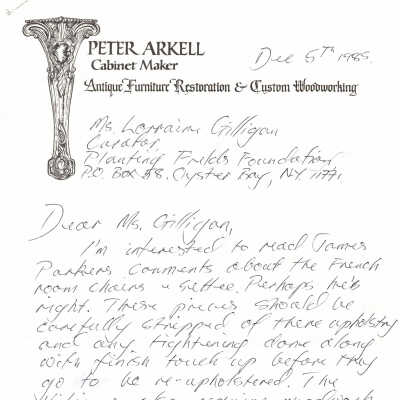 PETER ARKELL
Cabinet Maker
Antique Furniture Restoration & Custom Woodworking
Dec 5th 1985.
Ms. Lorraine Gilligan
Curator,
Planting Fields Foundation
P.O. Box 58. Oyster Bay, N.Y. 11771.
Dear Ms. Gilligan,
I'm interested to read James
Parkers comments about the French
room chairs & settee. Perhaps he's
right. These pieces should be
carefully stripped of there upholstry
and any tightening done along
with finish touch up before they
go to be re-upholstered. The
also